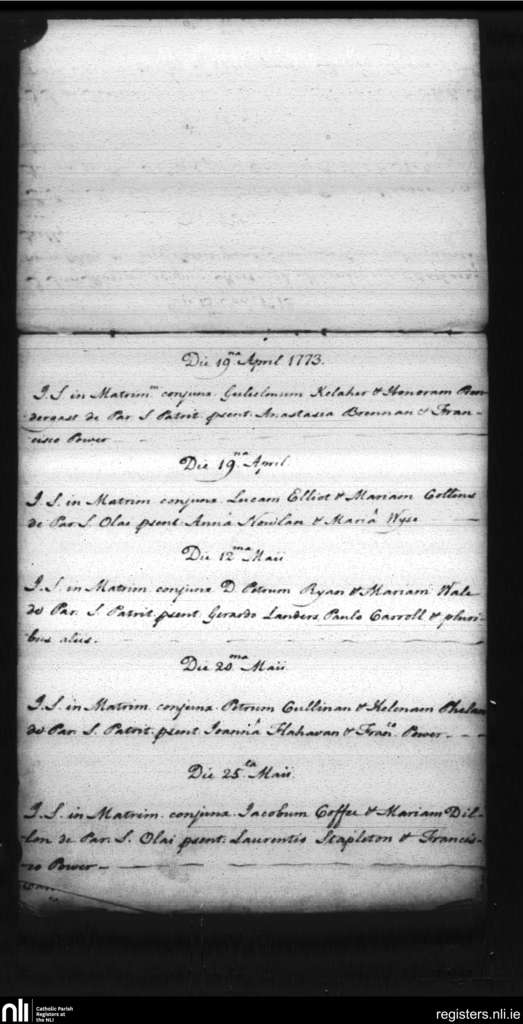 Die 19na April 1773.
I. S. in Matrimm conjunx. Gulielmum Kelaher & Honoram Pen-
dergast de Par. S. Patrit. psent. Anastasia Brennan & Fran-
cisco Power
Die 19na April.
I. S. in Matrim. conjunx. Lucam Elliot & Mariam Collins
de Par. S. Olai psent. Anna Nowlan & Maria Wyse
Die 12ma Maii
I. S. in Matrim. conjunx. D. Petrum Ryan & Mariam Wale
de Par. S. Patrit. psent. Gerardo Landers Paulo Carroll & pluri-
bus aliis.
Die 20ma Maii
I. S. in Matrim. conjunx. Petrum Cullinan & Helenam Phelan
de Par. S. Patrit. psent Joanna Flahavan & Franco. Power
Die 25ta Maii
I. S. in Matrim. conjunx. Jacobum Coffee & Mariam Dil-
lon de Par. S. Olai psent. Laurentio Stapleton & Francis-
co Power
nli
Catholic Parish
Registers at
the NLI
registers.nli.ie